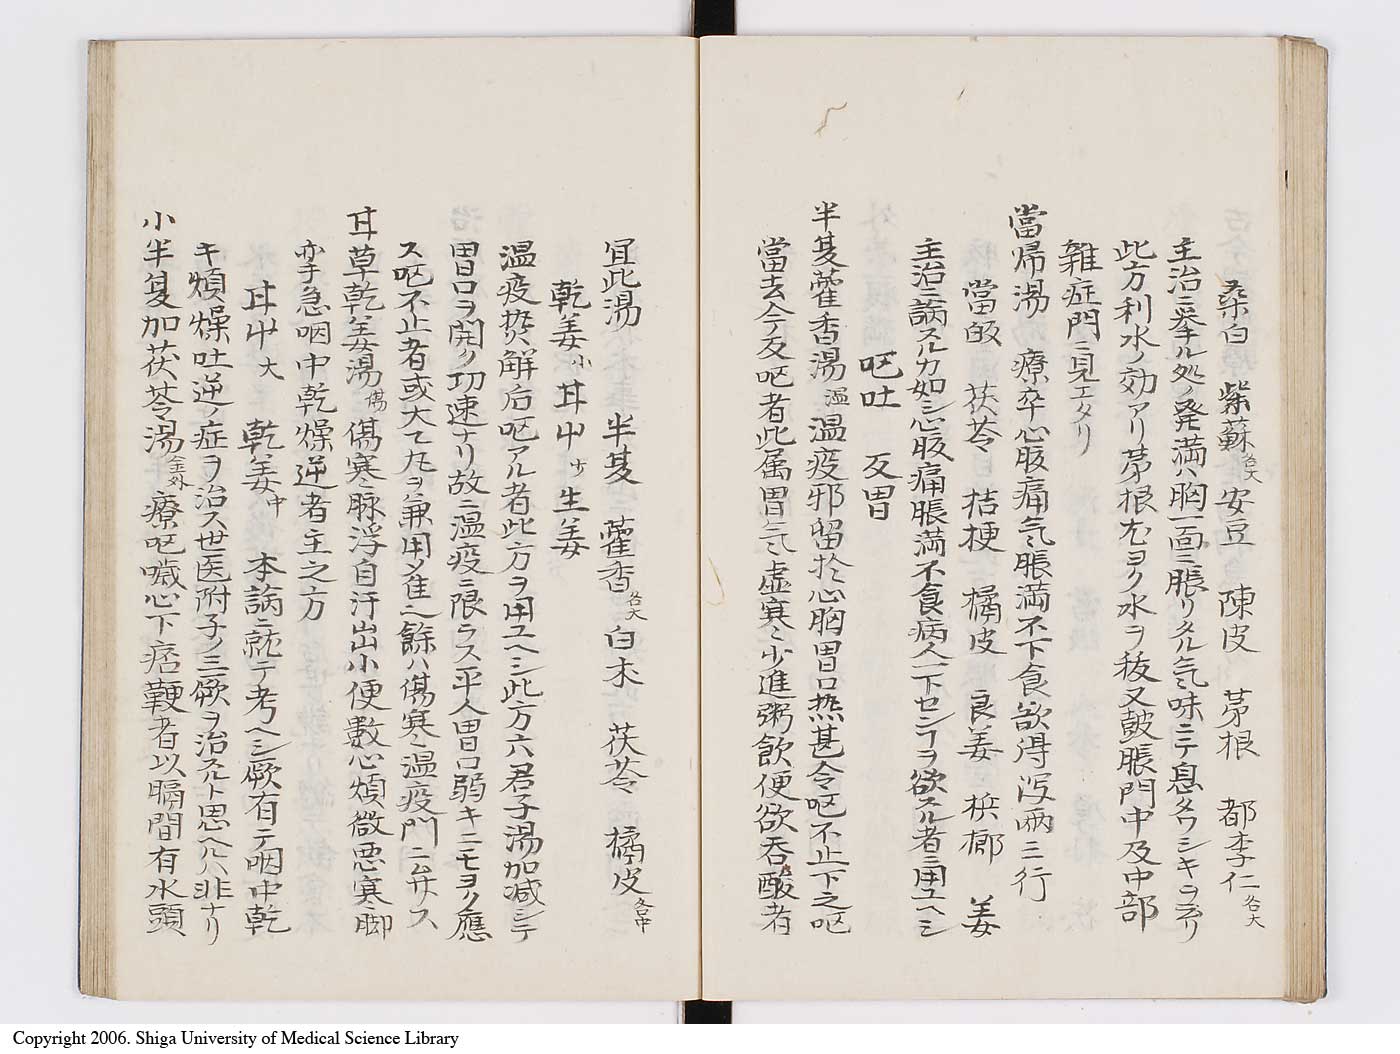 桑白 紫蘇各大 安豆 陳皮 茅根 都李仁各大
主治ニ挙ル処ノ発満ハ胸一面ニ脹リタル気味ニテ息タワシキヲ云リ
此方利水ノ効アリ茅根尤ヨク水ヲ抜又鼓脹門中及中部
雜症門ニ見エタリ
當帰湯 療卒心腹痛気脹満不下食欲得瀉両三行
當皈 茯苓 桔梗 橘皮 良姜 梹榔 姜
主治ニ謫スルカ如シ心腹痛脹満不食病人一下センヿヲ欲スル者ニ用ユヘシ
呕吐 反胃
半夏藿香湯温 温疫邪留於心胸胃口热甚令呕不止下之呕
當去今反呕者此属胃気虚寒ミ少進粥飲便欲吞酸者
宜此湯 半夏 藿香各大 白朮 茯苓 橘皮各中
乾姜小 甘屮少 生姜
温疫热解后呕アル者此方ヲ用ユヘシ此方六君子湯加減シテ
胃口ヲ開ク功速ナリ故ニ温疫ニ限ラス平人胃口弱キニモヨク應
ス呕不止者或大七九ヲ兼用
甘草乾姜湯傷 傷寒脉浮自汗出小便數心煩微悪寒脚
亦手急咽中乾燥逆者主之方
甘屮大 乾姜中 本謫ニ就テ考ヘシ厥有テ咽中乾
キ煩燥吐逆ノ症ヲ治ス世医附子ノ三厥ヲ治スルト思ヘルハ非ナリ
小半夏加茯苓湯金外 療呕噦心下痞鞕者以膈間有水頭
Copyright 2006. Shiga University of Medical Science Library